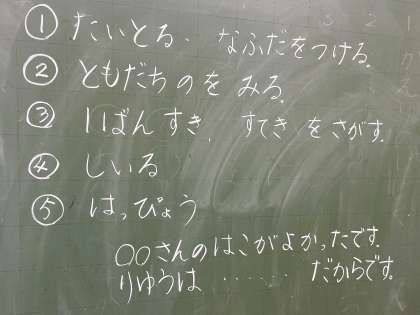 ① たいとる、なふだをつける。
② ともだちのをみる。
③ 1ばんすき、すてきをさがす。
④ しいる
⑤ はっぴょう
○○さんのはこがよかったです。
りゆうは ‥‥‥ だからです。